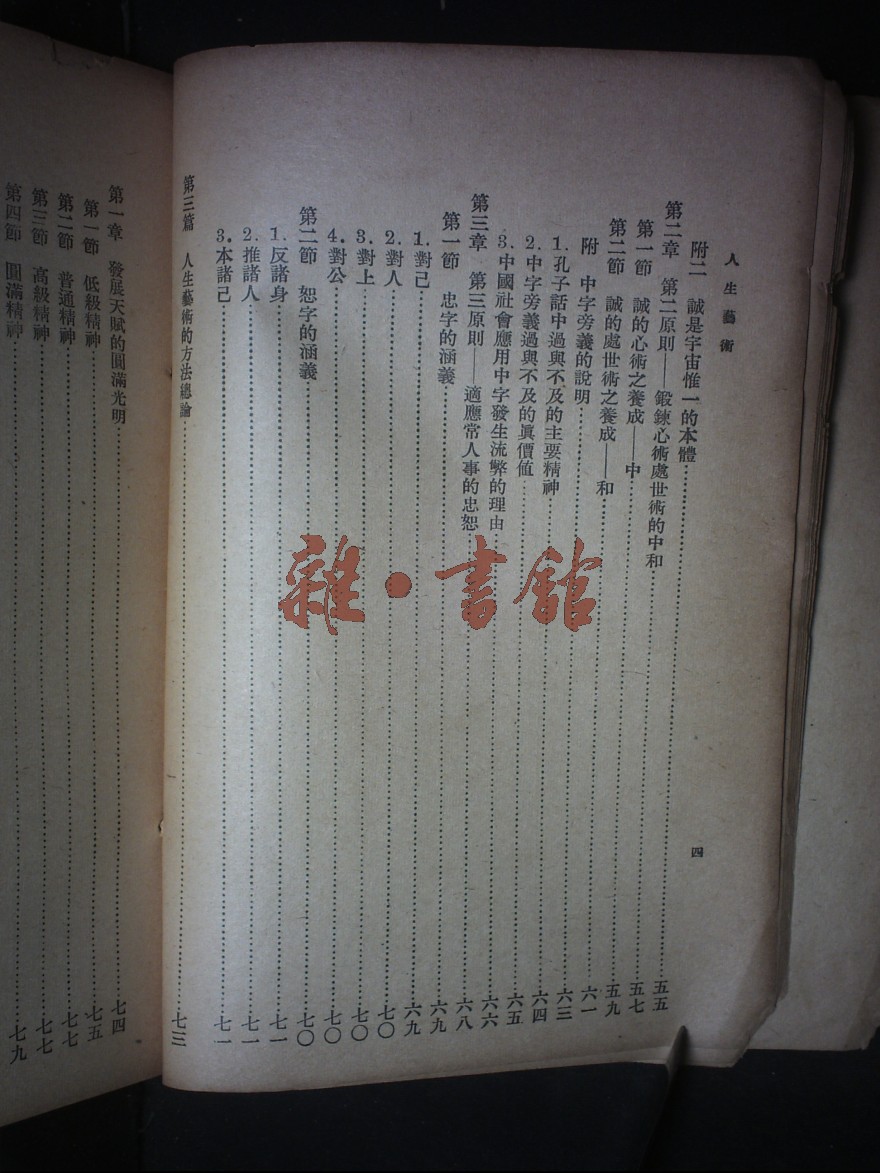 人生藝術
四
附二 誠是宇宙惟一的本體……五五
第二章 第二原則——鍛鍊心術處世術的中和……五七
第一節 誠的心術之養成——中……五九
第二節 誠的處世術之養成——和……六一
附 中字旁義的說明……六三
1.孔子話中過與不及的主要精神……六四
2.中字旁義過與不及的眞價值……六五
3.中國社會應用中字發生流弊的理由……六六
第三章 第三原則——適應常人事的忠恕……六八
第一節 忠字的涵義……六九
1.對己……六九
2.對人……七〇
3.對上……七〇
4.對公……七〇
第二節 恕字的涵義……七〇
1.反諸身……七一
2.推諸人……七一
3.本諸己……七一
第三篇 人生藝術的方法總論……七三
第一章 發展天賦的圓滿光明……七四
第一節 低級精神……七五
第二節 普通精神……七七
第三節 高級精神……七七
第四節 圓滿精神……七九
雜·書館